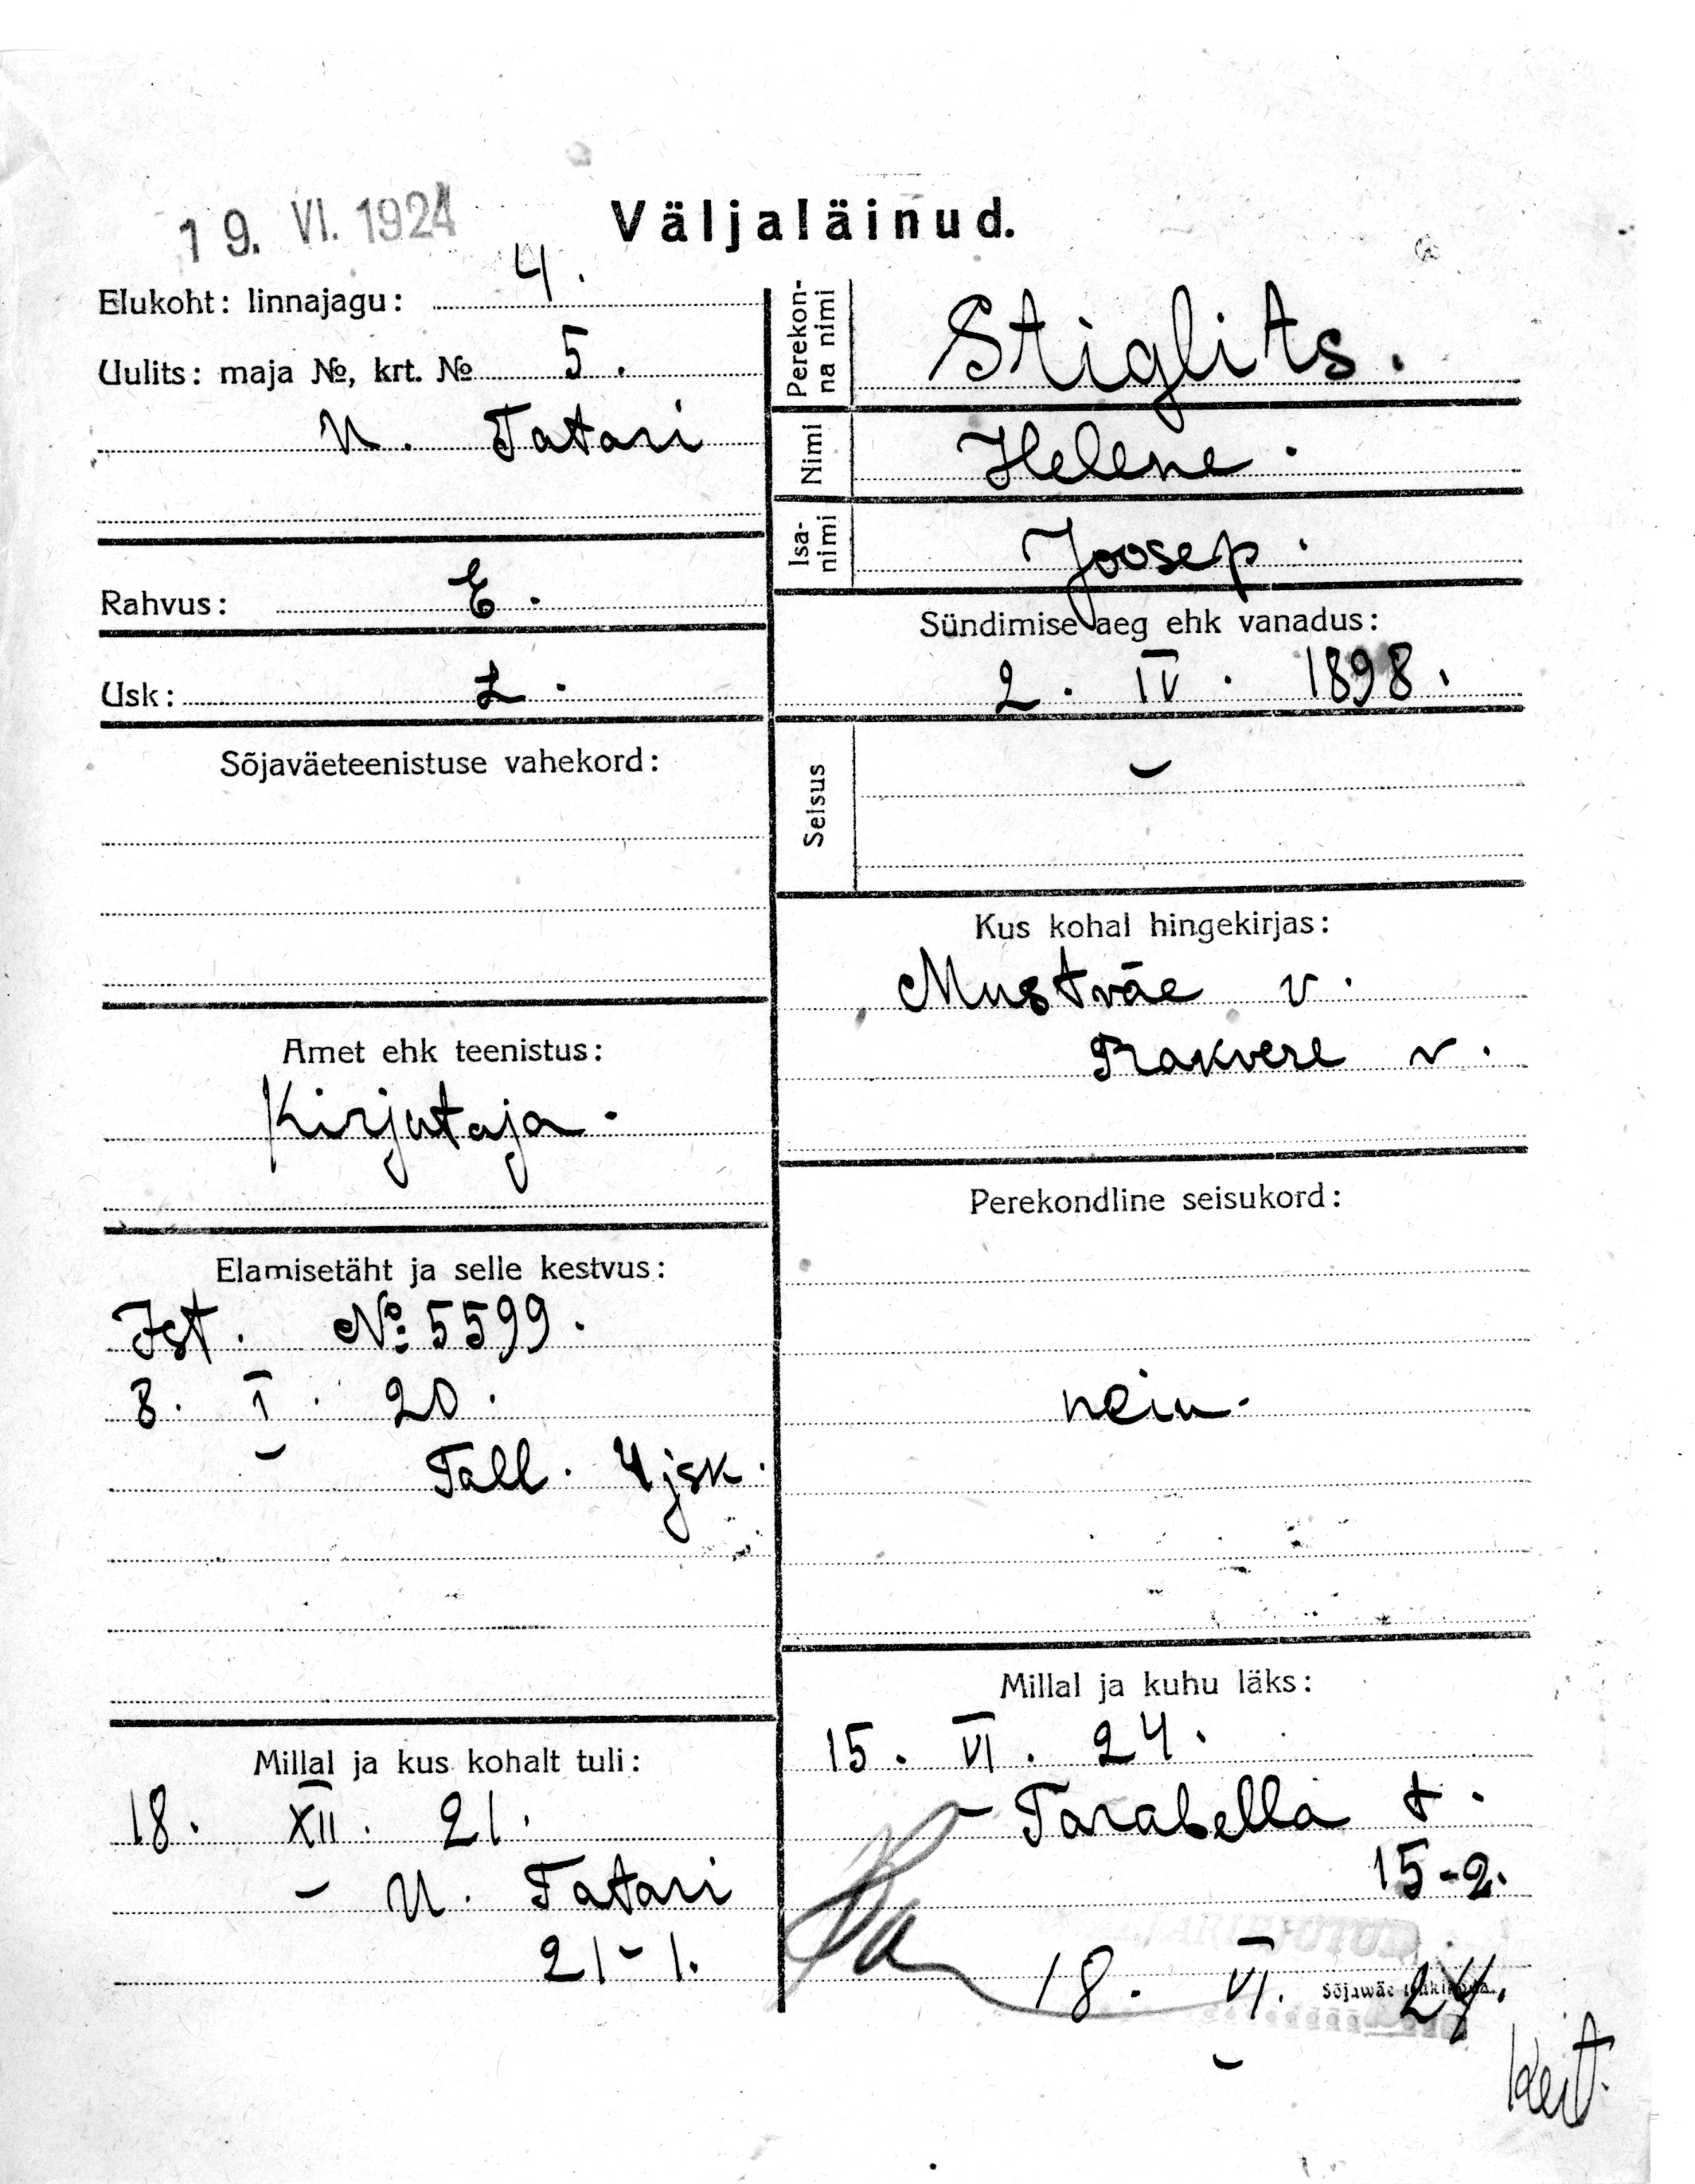 19. VI. 1924
Väljaläinud.
Elukoht: linnajagu: 4.
Uulits: maja №, krt. № 5.
U. Tatari
Rahvus: E.
Usk: L.
Sõjaväeteenistuse vahekord:
Amet ehk teenistus:
Kirjutaja.
Elamisetäht ja selle kestvus:
Ist. №: 5599.
8. I. 20.
Tall. 4 jsk.
Millal ja kus kohalt tuli:
18. XII. 21.
- U. Tatari
21-1.
Perekon-
na nimi
Stiglits.
Nimi
Helene.
Isa-
nimi
Joosep.
Sündimise aeg ehk vanadus:
2. IV. 1898.
Seisus
-
Kus kohal hingekirjas:
Mustväe v.
Rakvere v.
Perekondline seisukord:
neiu.
Millal ja kuhu läks:
15. VI. 24.
- Tarabella t.
15-2.
18. VI. 24.
Sõjawäe